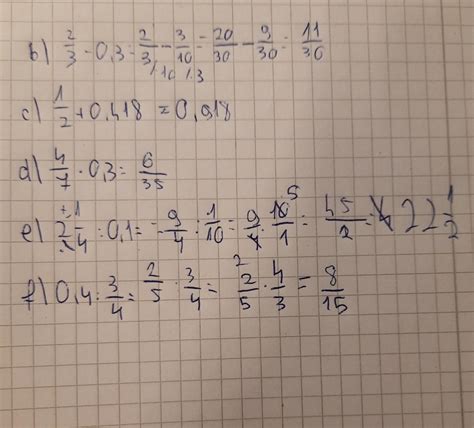 b) 2/3 - 0,3 = 2/3 - 3/10 = 20/30 - 9/30 = 11/30
/·10 /·3
c) 1/2 + 0,418 = 0,918
d) 4/7 · 0,3 = 6/35
e) 2 1/4 : 0,1 = 9/4 : 1/10 = 9/4 · 10/1 = 45/2 = 22 1/2
5
f) 0,4 : 3/4 = 2/5 : 3/4 = 2/5 · 4/3 = 8/15